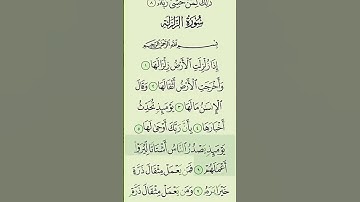 ذَٰلِكَ لِمَنْ خَشِيَ رَبَّهُۥ ٨
سُورَةُ الزَّلْزَلَةِ
بِسْمِ ٱللَّهِ ٱلرَّحْمَٰنِ ٱلرَّحِيمِ
إِذَا زُلْزِلَتِ ٱلْأَرْضُ زِلْزَالَهَا ١
وَأَخْرَجَتِ ٱلْأَرْضُ أَثْقَالَهَا ٢ وَقَالَ
ٱلْإِنسَٰنُ مَا لَهَا ٣ يَوْمَئِذٍ تُحَدِّثُ
أَخْبَارَهَا ٤ بِأَنَّ رَبَّكَ أَوْحَىٰ لَهَا ٥
يَوْمَئِذٍ يَصْدُرُ ٱلنَّاسُ أَشْتَاتًا لِّيُرَوْا۟
أَعْمَٰلَهُمْ ٦ فَمَن يَعْمَلْ مِثْقَالَ ذَرَّةٍ
خَيْرًا يَرَهُۥ ٧ وَمَن يَعْمَلْ مِثْقَالَ ذَرَّةٍ